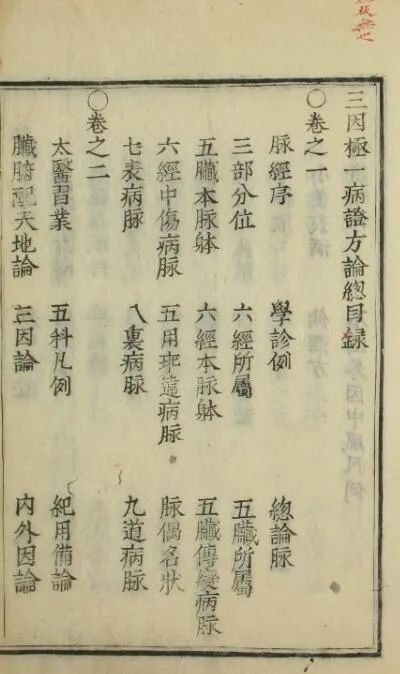 三因極一病證方論總目録
〇卷之一
脉經序 學診例 總論脉
三部分位 六經所屬 五臟所屬
五臟本脉躰 六經本脉躰 五臟傳變病脉
六經中傷病脉 五用乖違病脉 脉偶名狀
七表病脉 八裏病脉 九道病脉
〇卷之二
太醫習業 五科凡例 紀用備論
臟腑配天地論 三因論 內外因論